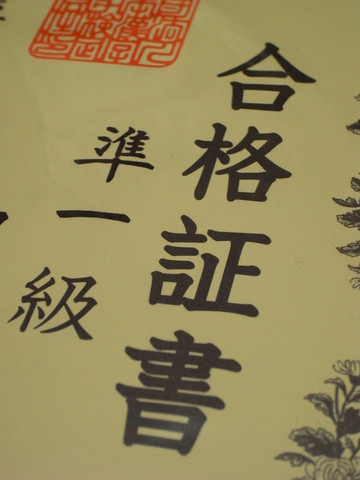 合格証書
準一級